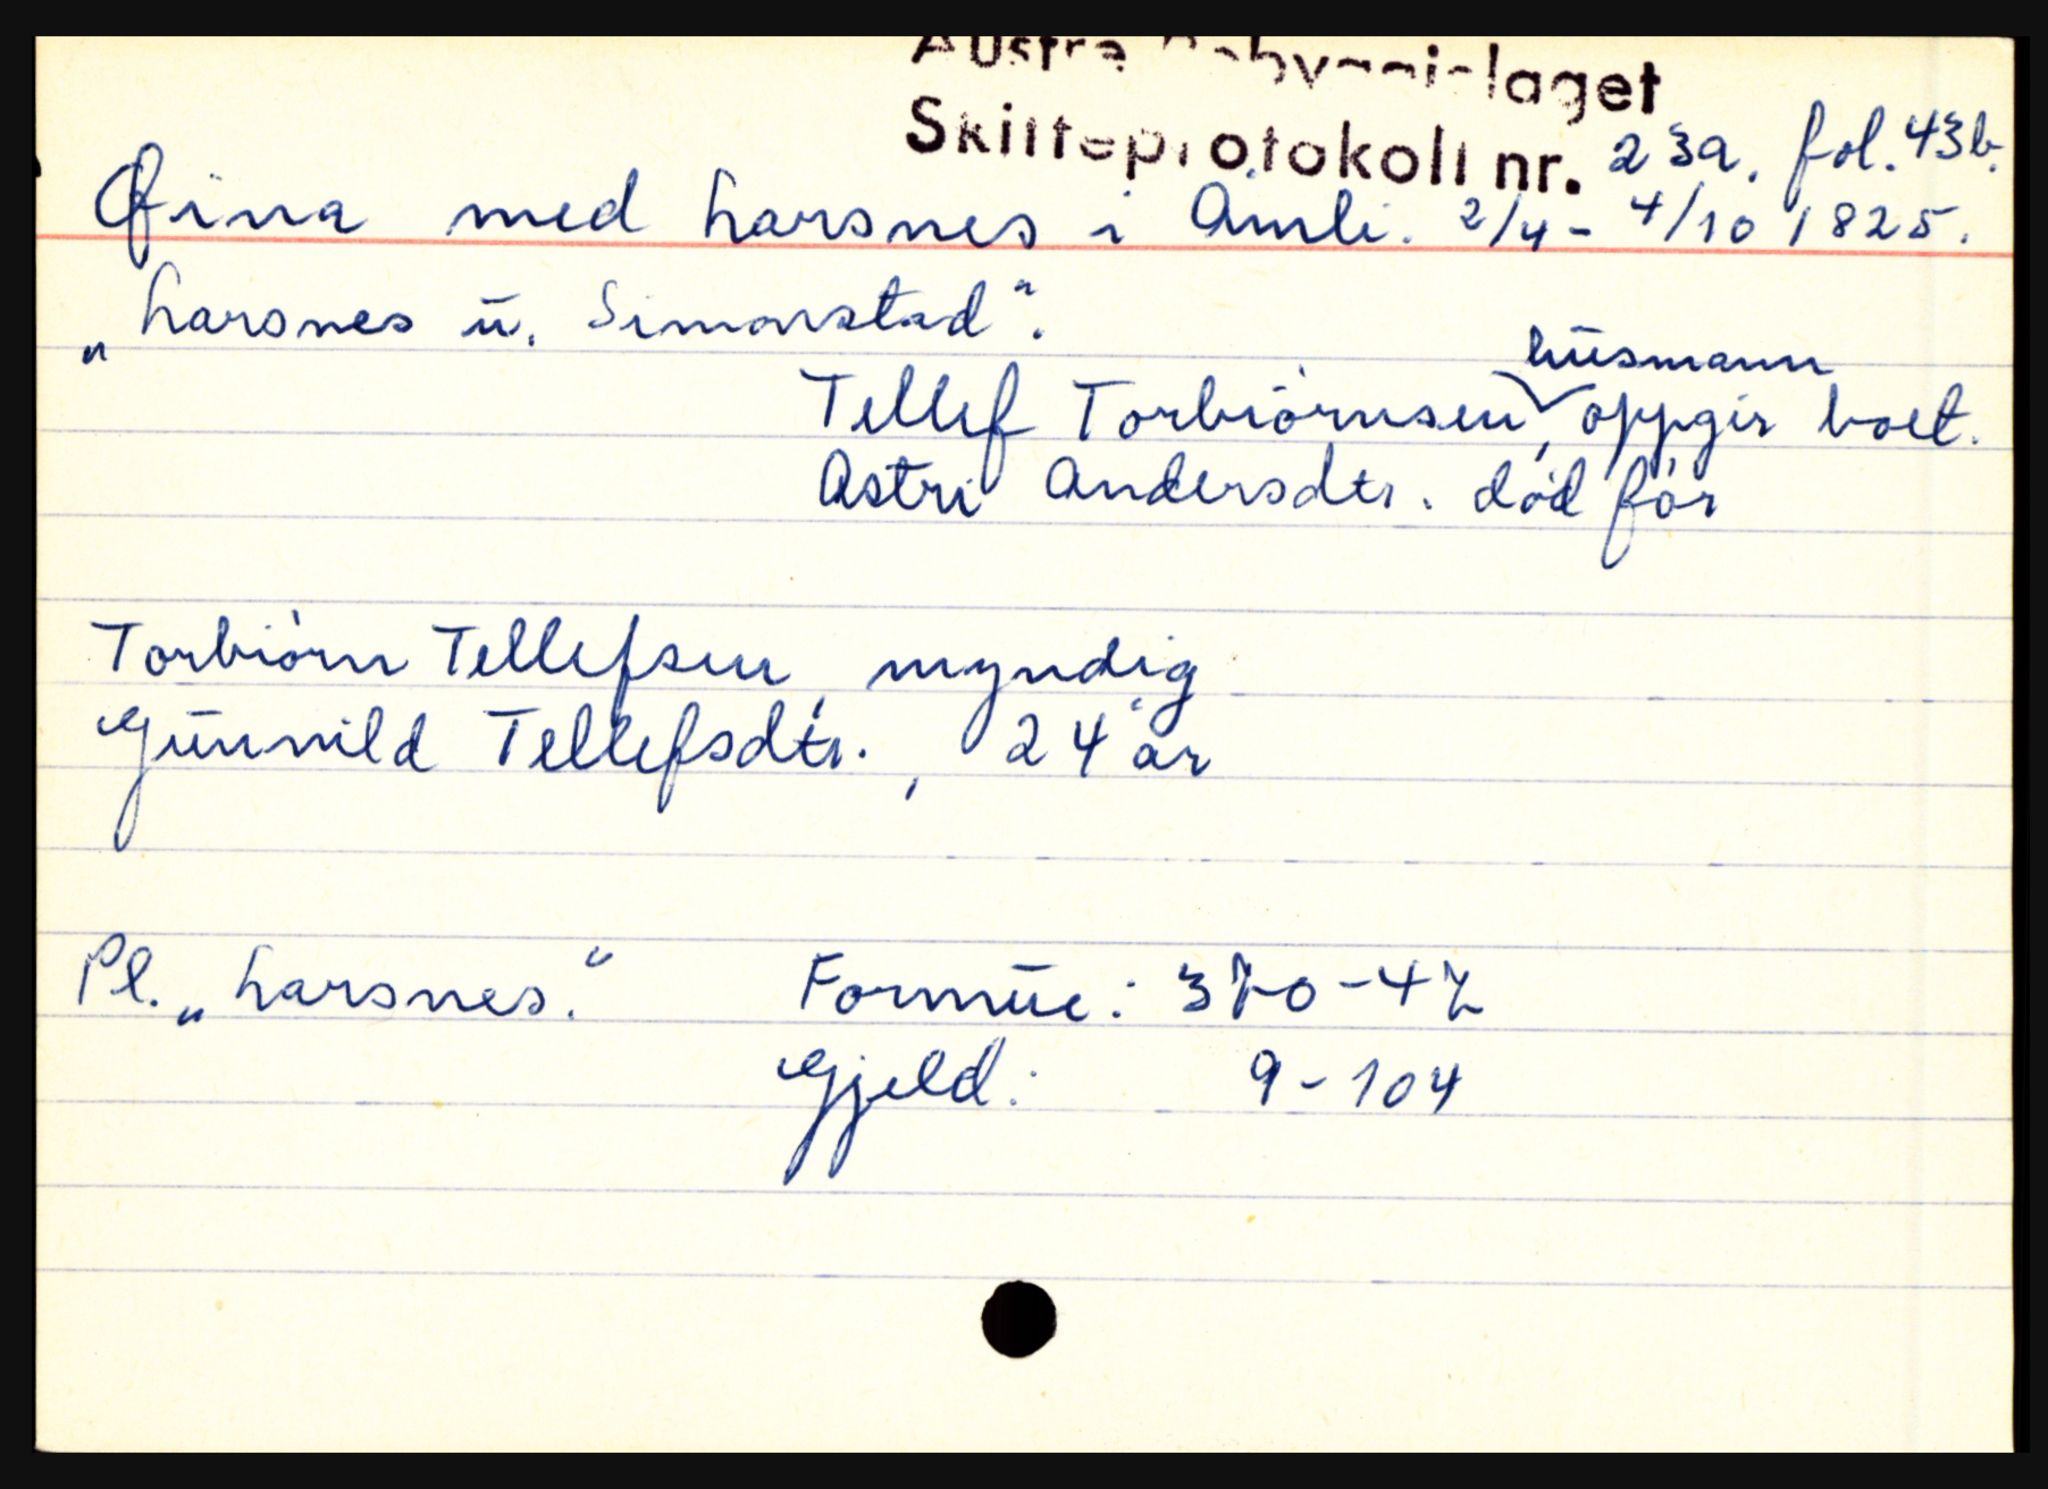 laget
Skifteprotokoll nr. 23a. fol. 43b.
Øina med Larsnes i Åmli. 2/4 - 4/10 1825.
„Larsnes u. Simonstad“.
husmann
Tellef Torbiörnsen, oppgir boet.
Astri Andersdtr. död för
Torbiörn Tellefsen, myndig
Gunnild Tellefsdtr., 24 år
Pl. „Larsnes.“ Formue: 370-47
Gjeld: 9-104